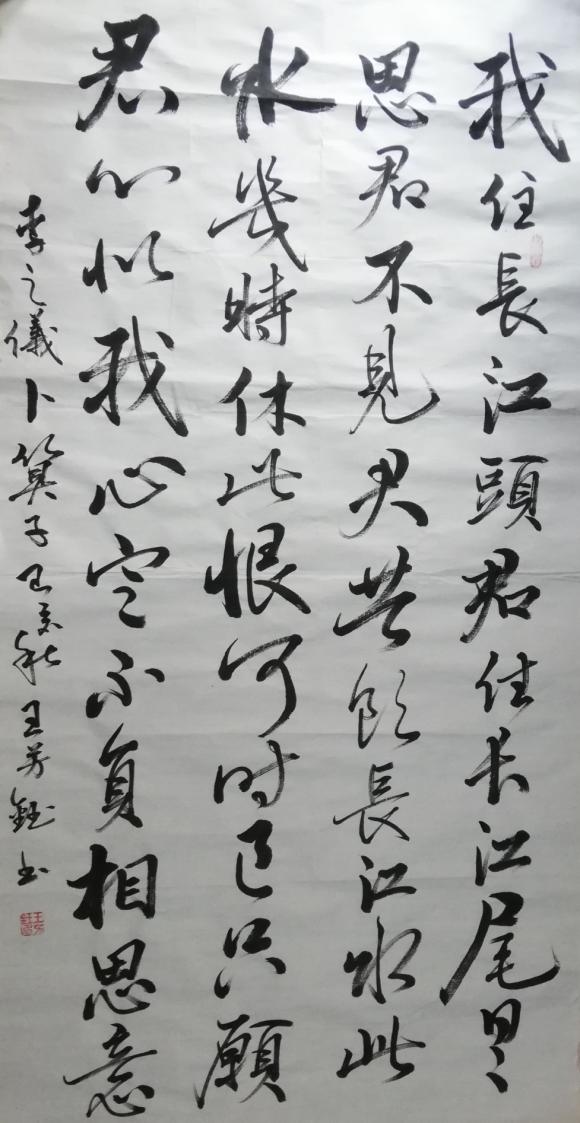 我住長江頭君住长江尾日々
思君不見君共飲長江水此
水幾時休此恨何时已只願
君心似我心定不負相思意
李之儀卜算子己亥秋王芳鈺书